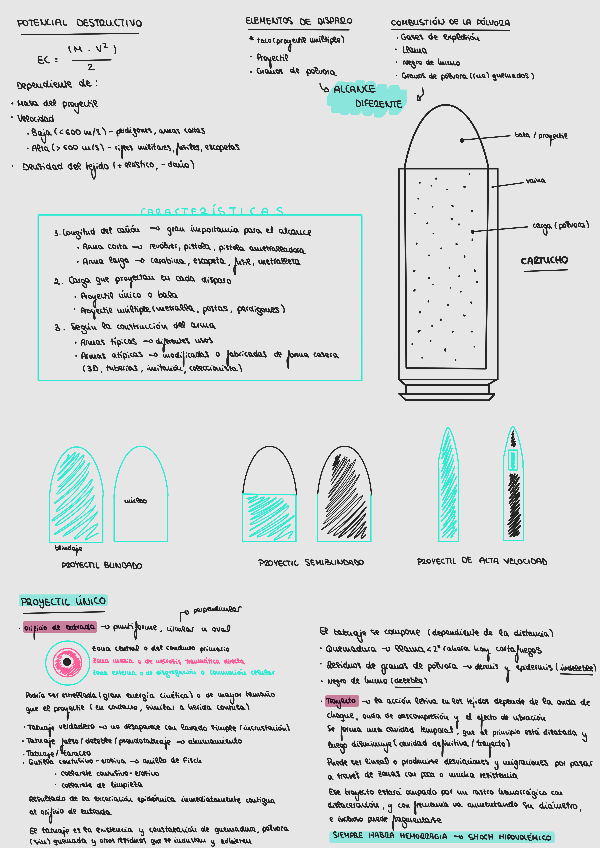 POTENCIAL DESTRUCTIVO
EC = (M · V²)
2
Dependiente de:
· Masa del proyectil
· Velocidad
· Baja (<600 m/s) - perdigones, armas cortas
· Alta (>600 m/s) - rifles militares, fusiles, escopetas
· Densidad del tejido (+ elástico, - daño)
ELEMENTOS DE DISPARO
* Taco (proyectil múltiple)
· Proyectil
· Granos de pólvora
ALCANCE
DIFERENTE
COMBUSTIÓN DE LA PÓLVORA
· Gases de explosión
· Llama
· Negro de humo
· Granos de pólvora ((no) quemados)
bala / proyectil
vaina
carga (pólvora)
CARTUCHO
CARACTERÍSTICAS
1. Longitud del cañón → gran importancia para el alcance
· Arma corta → revólver, pistola, pistola ametralladora
· Arma larga → carabina, escopeta, fusil, metralleta
2. Carga que proyectan en cada disparo
· Proyectil único o bala
· Proyectil múltiple (metralla, postas, perdigones)
3. Según la construcción del arma
· Armas típicas → diferentes usos
· Armas atípicas → modificadas o fabricadas de forma casera
(3D, tuberías, imitación, coleccionista)
núcleo
blindaje
PROYECTIL BLINDADO
PROYECTIL SEMIBLINDADO
PROYECTIL DE ALTA VELOCIDAD
PROYECTIL ÚNICO
perpendicular
· Orificio de entrada → puntiforme, circular u oval
Zona central o del conducto primario
Zona media o de necrosis traumática directa
Zona externa o de disgregación o conminución celular
Podría ser estrellada (gran energía cinética) o de mayor tamaño
que el proyectil (en cachano, similar a herida contusa)
· Tatuaje verdadero → no desaparece con lavado simple (incrustación)
· Tatuaje falso/deleble/pseudotatuaje → ahumamiento
· Tatuaje/taraceo
· Cintilla contusivo-erosiva → anillo de Fisch
· collarete contusivo-erosivo
· collarete de limpieza
Resultado de la excoriación epidérmica inmediatamente contigua
al orificio de entrada
El tatuaje es la existencia y constatación de quemadura, pólvora
(sin) quemada y otros residuos que se incrustan y adhieren
El tatuaje se compone (dependiente de la distancia)
· Quemadura → llama <2º ahora hay cortafuegos
· Residuos de granos de pólvora → dermis y epidermis (indeleble)
· Negro de humo (deleble)
· Trayecto → la acción lesiva en los tejidos depende de la onda de
choque, onda de descompresión y el efecto de vibración
Se forma una cavidad temporal, que al principio está dilatada y
luego disminuye (cavidad definitiva / trayecto)
Puede ser lineal o producirse desviaciones y migraciones por pasar
a través de zonas con poca o mucha resistencia
Ese trayecto estará ocupado por un rastro hemorrágico con
dislaceración, y con frecuencia va aumentando su diámetro,
e incluso puede fragmentarse
SIEMPRE HABRÁ HEMORRAGIA → SHOCK HIPOVOLÉMICO